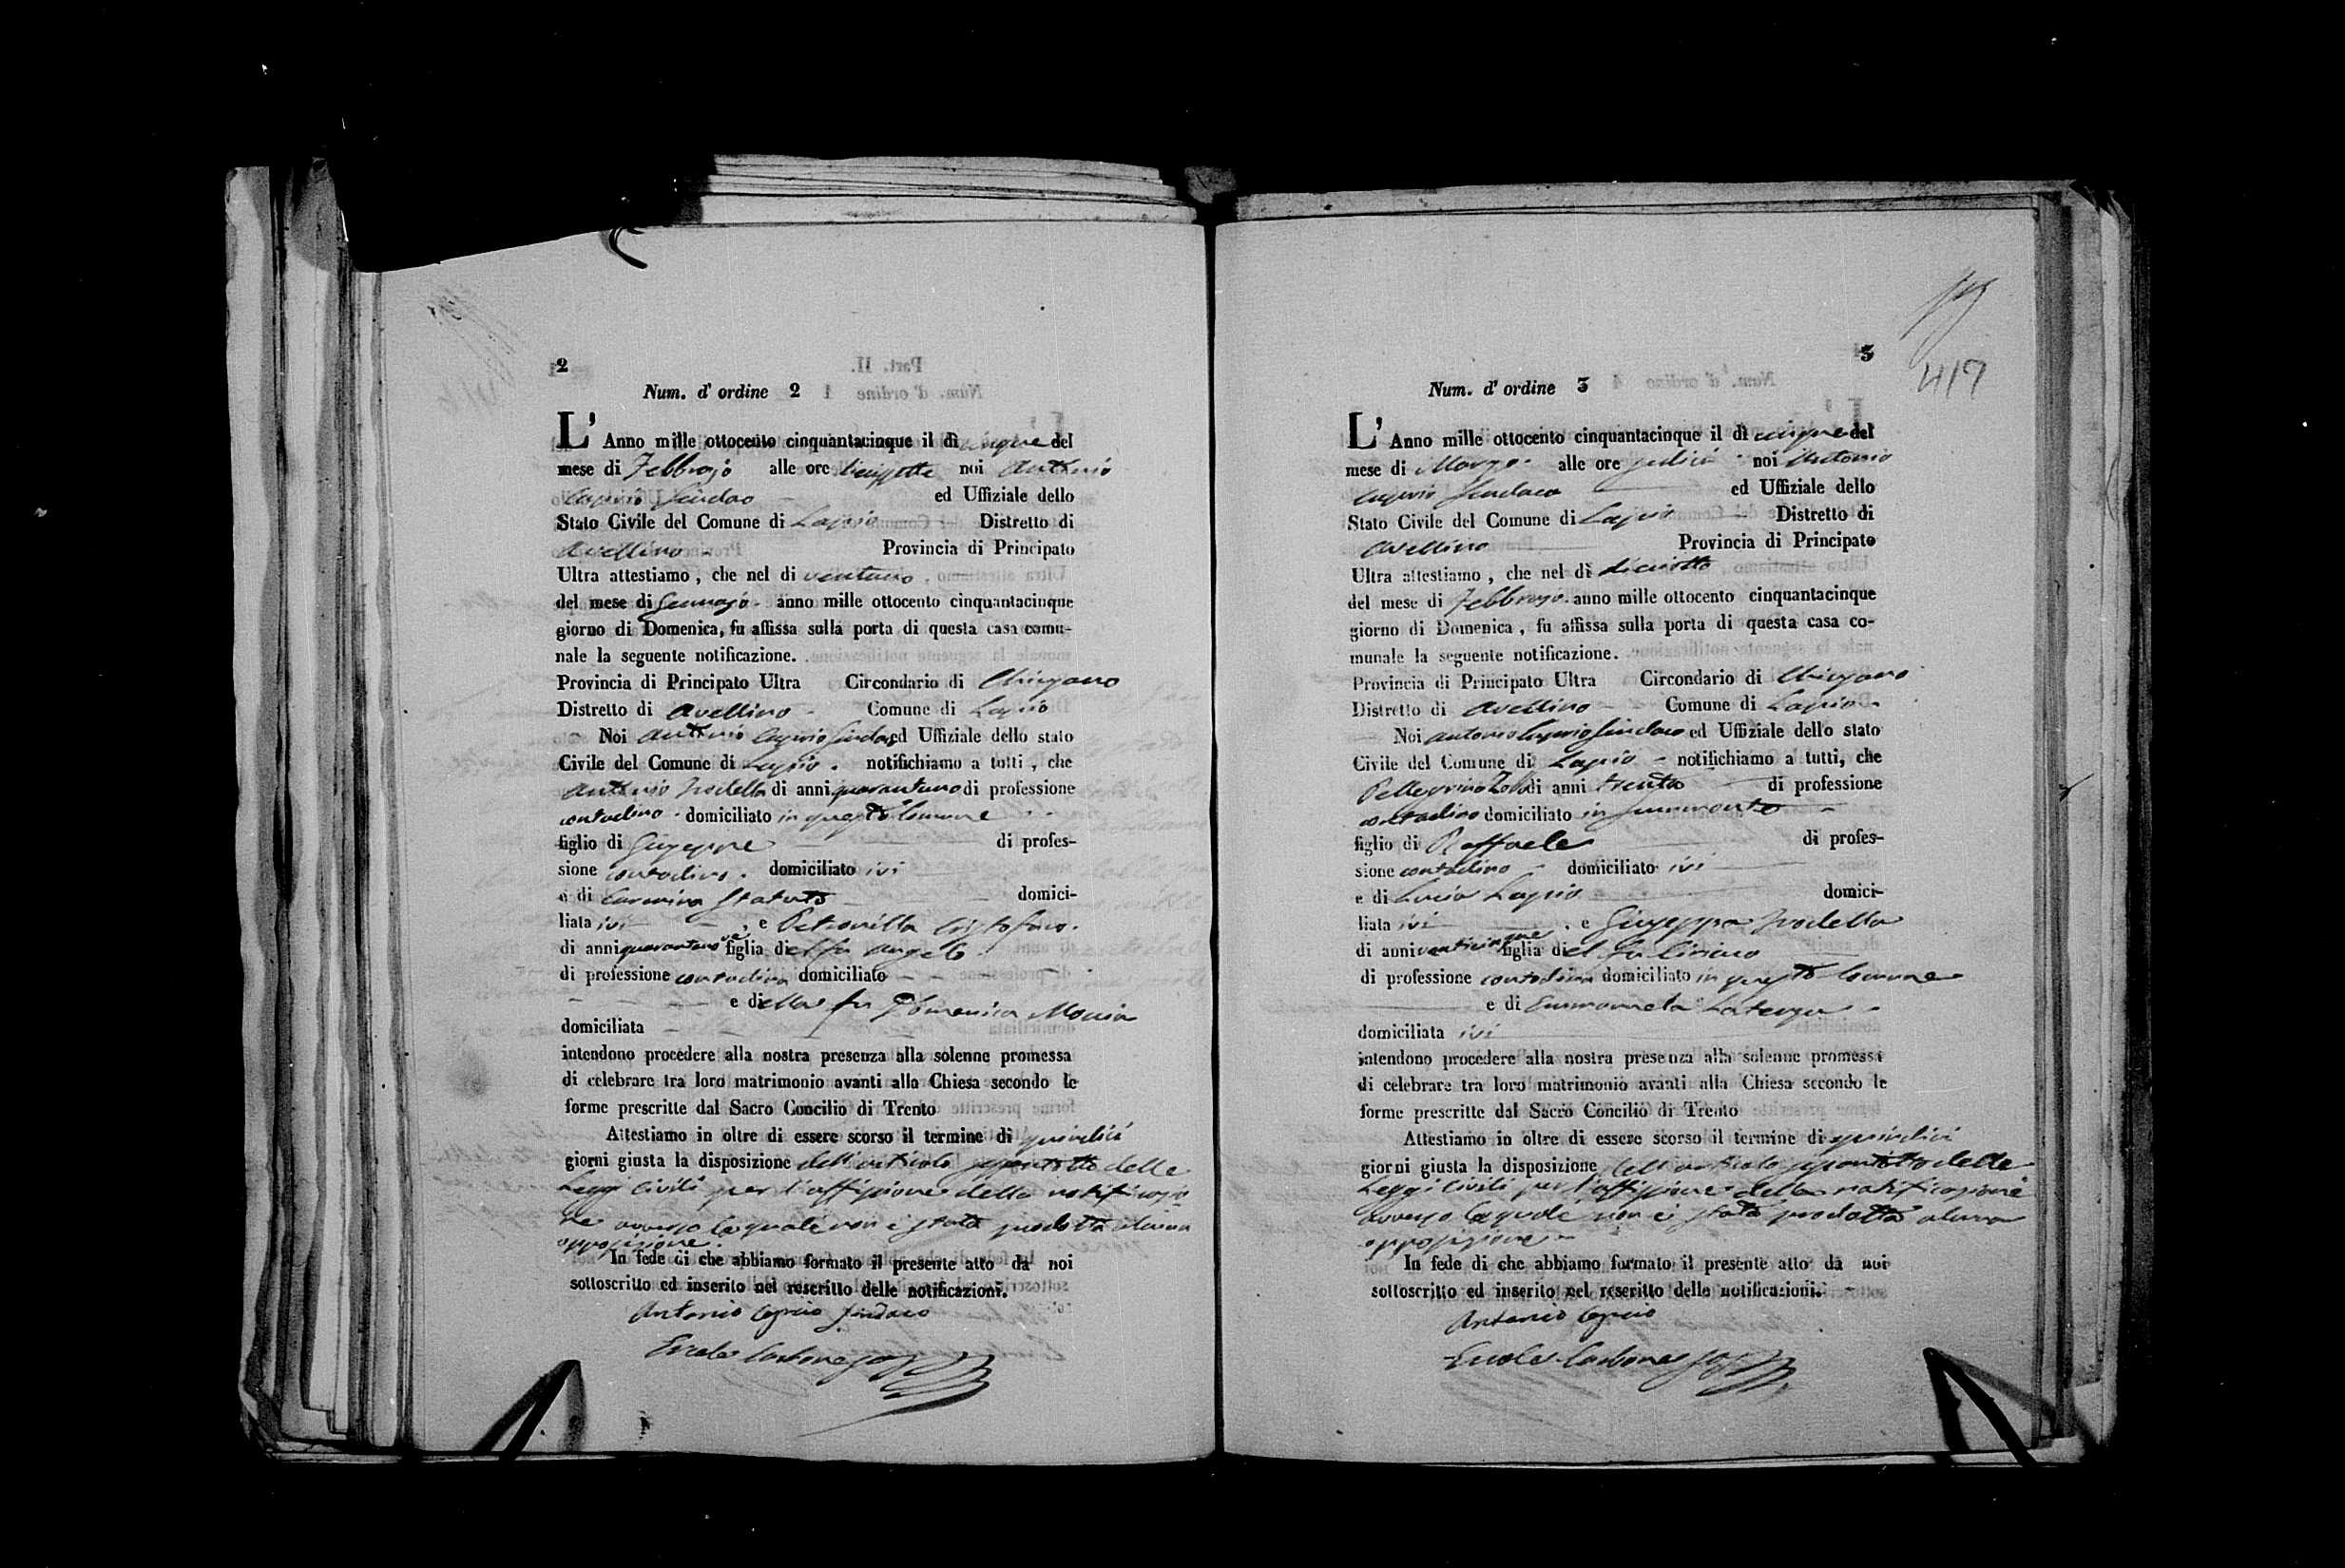 2
Num. d' ordine 2
L' Anno mille ottocento cinquantacinque il dì cinque del
mese di Febbrajo alle ore diecissette noi Antonio
Caprio Sindaco ed Uffiziale dello
Stato Civile del Comune di Lapio Distretto di
Avellino Provincia di Principato
Ultra attestiamo, che nel di ventuno
del mese di Gennajo anno mille ottocento cinquantacinque
giorno di Domenica, fu affissa sulla porta di questa casa comu-
nale la seguente notificazione.
Provincia di Principato Ultra Circondario di Chiusano
Distretto di Avellino Comune di Lapio
Noi Antonio Caprio Sindaco ed Uffiziale dello stato
Civile del Comune di Lapio notifichiamo a tutti, che
Antonio di anni quarantuno di professione
contadino domiciliato in questo Comune
figlio di Giuseppe di profes-
sione contadino domiciliato ivi
e di Carmina Statuto domici-
liata ivi, e Petronilla Cristofaro
di anni quarantanove figlia del fu Angelo
di professione contadina domiciliato
e della fu Domenica
domiciliata
intendono procedere alla nostra presenza alla solenne promessa
di celebrare tra loro matrimonio avanti alla Chiesa secondo le
forme prescritte dal Sacro Concilio di Trento
Attestiamo in oltre di essere scorso il termine di quindici
giorni giusta la disposizione dell'articolo delle
Leggi Civili per l'affissione della notificazio
ne avverso la quale non è stata prodotta alcuna
opposizione.
In fede di che abbiamo formato il presente atto da noi
sottoscritto ed inserito nel rescritto delle notificazioni.
Antonio Caprio Sindaco
Ercole Carbone
3
417
Num. d' ordine 3
L' Anno mille ottocento cinquantacinque il dì cinque del
mese di Marzo alle ore sedici noi Antonio
Caprio Sindaco ed Uffiziale dello
Stato Civile del Comune di Lapio Distretto di
Avellino Provincia di Principato
Ultra attestiamo, che nel dì diciotto
del mese di Febbrajo anno mille ottocento cinquantacinque
giorno di Domenica, fu affissa sulla porta di questa casa co-
munale la seguente notificazione.
Provincia di Principato Ultra Circondario di Chiusano
Distretto di Avellino Comune di Lapio
Noi Antonio Caprio Sindaco ed Uffiziale dello stato
Civile del Comune di Lapio notifichiamo a tutti, che
Pellegrino Zollo di anni trenta di professione
contadino domiciliato in Summonte
figlio di Raffaele di profes-
sione contadino domiciliato ivi
e di Lucia Lapio domici-
liata ivi, e Giuseppa
di anni venticinque figlia del fu Ciriaco
di professione contadina domiciliato in questo Comune
e di
domiciliata ivi
intendono procedere alla nostra presenza alla solenne promessa
di celebrare tra loro matrimonio avanti alla Chiesa secondo le
forme prescritte dal Sacro Concilio di Trento
Attestiamo in oltre di essere scorso il termine di quindici
giorni giusta la disposizione dell'articolo delle
Leggi Civili per l'affissione della notificazione
avverso la quale non è stata prodotta alcuna
opposizione
In fede di che abbiamo formato il presente atto da noi
sottoscritto ed inserito nel rescritto delle notificazioni.
Antonio Caprio
Ercole Carbone